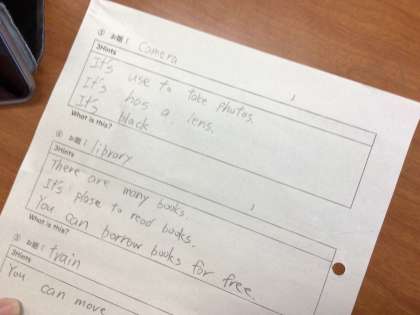 ③ お題： Camera
3Hints
It's use to take photos.
It's has a lens.
It's black
What is this?
④ お題： library
3Hints
There are many books.
It's place to read books.
You can borrow books for free.
What is this?
⑤ お題： train
3Hints
You can move